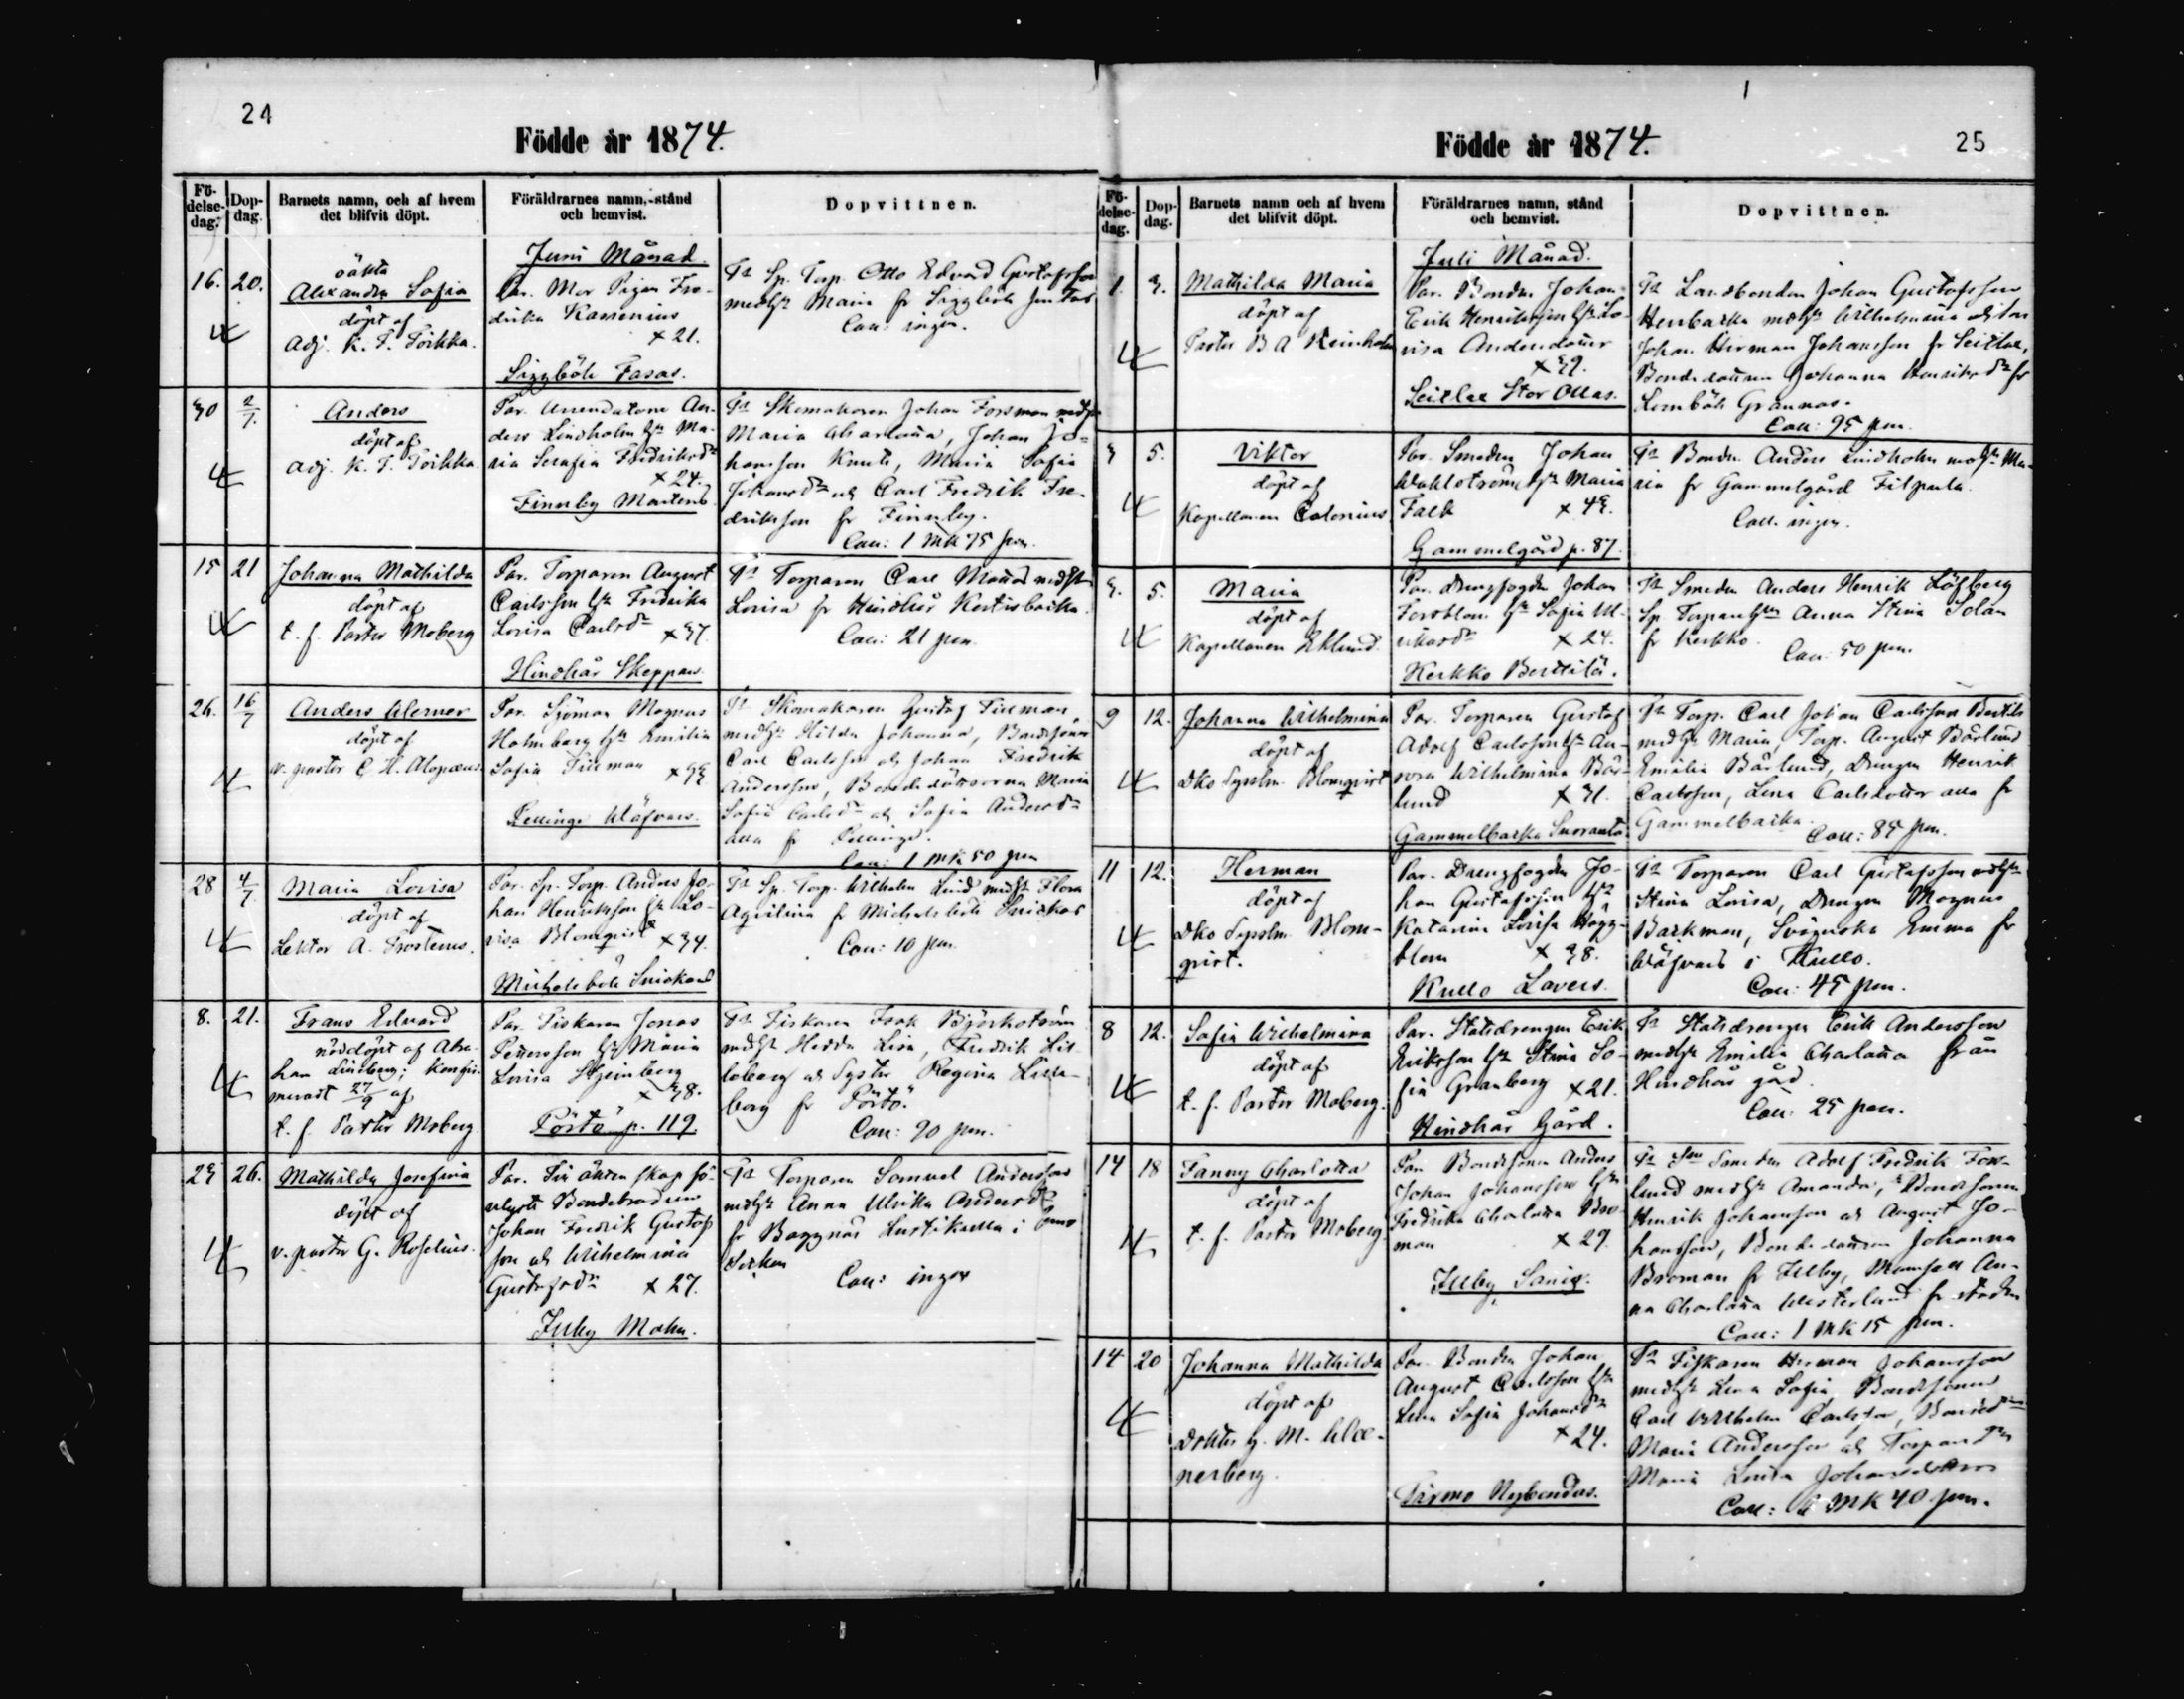 24
Födde år 1874.
Fö-
delse-
dag.
Dop-
dag.
Barnets namn, och af hvem
det blifvit döpt.
Föräldrarnes namn, stånd
och hemvist.
Dopvittnen.
Juni Månad.
16. 20.
oäkta
Alexandra Sofia
döpt af
Adj. K. F. Toikka.
Par. Mor Pigan Fre-
drika Karsenius
x 21.
Siggböle Fasas.
Ts Sp. Torp. Otto Edvard Gustafsson
medhu Maria fr Siggböle
Coll: ingen.
30 2/7.
Anders
döpt af
Adj. K. F. Toikka.
Par. Arrendatorn An-
ders Lindholm hu Ma-
ria Serafia Fredriksdr
x 24.
Finnby Mårtens
Ts Skomakaren Johan Forsman medhu
Maria Charlotta, Johan Jo-
hansson Knuts, Maria Sofia
Johansdr och Carl Fredrik Fre-
driksson fr Finnby.
Coll: 1 mk 75 pen.
15 21
Johanna Mathilda
döpt af
t. f. Pastor Moberg
Par. Torparen August
Carlsson hu Fredrika
Lovisa Carlsdr x 37.
Hindhår Skeppars.
Ts Torparen Carl medhu
Lovisa fr Hindhår Kertisbacka.
Coll: 21 pen.
26. 16/7
Anders Werner
döpt af
v. pastor C. H. Alopæus
Par. Sjöman Magnus
Holmberg hu Emilia
Sofia Tillman x 33.
Pellinge Wäfvars.
Ts Skomakaren Gustaf Tillman
medhu Hilda Johanna, Bondsonen
Carl Carlsson och Johan Fredrik
Andersson, Bondedöttrarna Maria
Sofia Carlsdr och Sofia Andersdr
alla fr Pellinge.
Coll: 1 mk 50 pen
28 4/7
Maria Lovisa
döpt af
Lektor A. Frosterus.
Par. Sp. Torp. Anders Jo-
han Henriksson hu Lo-
visa Blomqvist x 34.
Michelsböle Snickars
Ts Sp. Torp. Wilhelm Lind medhu Flora
Aqvilina fr Michelsböle Snickars
Coll: 10 pen.
8. 21.
Frans Edvard
nöddöpt af Abra-
ham Lindberg; konfir-
meradt 27/9 af
t. f. Pastor Moberg
Par. Fiskaren Jonas
Pettersson hu Maria
Lovisa Stjernberg
x 38.
Pörtö p. 119.
Ts Fiskaren Isak Björkström
medhu Hedda Lisa, Fredrik Lil-
leberg och Syster Regina Lille-
berg fr Pörtö.
Coll: 90 pen.
23 26.
Mathilda Josefina
döpt af
v. pastor G. Roselius.
Par. Till äktenskap fö-
relyste Bondebrodren
Johan Fredrik Gustafs-
son och Wilhelmina
Gustafsdr x 27.
Illby Malm.
Ts Torparen Samuel Andersson
medhu Anna Ulrika Andersdr
fr Baggnäs Lustikulla i
Socken
Coll: ingen
25
Födde år 1874.
Fö-
delse-
dag.
Dop-
dag.
Barnets namn och af hvem
det blifvit döpt.
Föräldrarnes namn, stånd
och hemvist.
Dopvittnen.
Juli Månad.
1. 3.
Mathilda Maria
döpt af
Pastor B. A. Reinholm
Par. Bonden Johan
Erik Henriksson hu Lo-
visa Andersdotter
x 39.
Seitlax Stor Ollas.
Ts Landbonden Johan Gustafsson
Herrbacka medhu Wilhelmina
Johan Herman Johansson fr Seitlax,
Bondedottren Johanna Henriksdr fr
Grannas.
Coll: 95 pen.
3 5.
Viktor
döpt af
Kapellanen Calonius
Par. Smeden Johan
Wahlström hu Maria
Falk x 43.
Gammelgård p. 87.
Ts Bonden Anders Lindholm medhu Ma-
ria fr Gammelgård Filpula.
Coll: ingen.
3. 5.
Maria
döpt af
Kapellanen Eklund.
Par. Drengfogden Johan
Forsblom hu Sofia Ul-
riksdr x 24.
Kerkko Berttilä.
Ts Smeden Anders Henrik Löfberg
Sp. Torpare hu Anna Stina Solan
fr Kerkko.
Coll: 50 pen.
9 12.
Johanna Wilhelmina
döpt af
Dko Sysslm. Blomqvist
Par. Torparen Gustaf
Adolf Carlsson hu Au-
rora Wilhelmina Bär-
lund x 31.
Gammelbacka Suoranta.
Ts Torp. Carl Johan Carlsson Bertils
medhu Maria, Torp. August Bärlund
Emilia Bärlund, Drengen Henrik
Carlsson, Lena Carlsdotter alla fr
Gammelbacka.
Coll: 85 pen.
11 12.
Herman
döpt af
Dko Sysslm. Blom-
qvist.
Par. Drengfogden Jo-
han Gustafsson hu
Katarina Lovisa Hägg-
blom x 38.
Kullo Lavers.
Ts Torparen Carl Gustafsson medhu
Stina Lovisa, Drengen Magnus
Backman, Svägerska Emma fr
Wäfvars i Kullo.
Coll: 45 pen.
8 12.
Sofia Wilhelmina
döpt af
t. f. Pastor Moberg.
Par. Statsdrengen Erik
Eriksson hu Stina So-
fia Granberg x 21.
Hindhår Gård.
Ts Statsdrengen Erik Andersson
medhu Emilia Charlotta från
Hindhår gård.
Coll: 25 pen.
14 18
Fanny Charlotta
döpt af
t. f. Pastor Moberg
Par. Bondsonen Anders
Johan Johansson hu
Fredrika Charlotta Bro-
man x 29.
Illby Sanix.
Ts Smeden Adolf Fredrik Fors-
lund medhu Amanda, Bondsonen
Henrik Johansson och August Jo-
hansson, Bondedottren Johanna
Broman fr Illby, Mamsell An-
na Charlotta Westerlund fr staden
Coll: 1 mk 15 pen.
14 20
Johanna Mathilda
döpt af
Doktor G. M. Wæ-
nerberg.
Par. Bonden Johan
August Carlsson hu
Lena Sofia Johansdr
x 24.
Pirmo Nybondas.
Ts Fiskaren Herman Johansson
medhu Lena Sofia, Bondsonen
Carl Wilhelm Carlsson,
Maria Andersson och
Maria Lovisa Johansdotter
Coll: mk 40 pen.